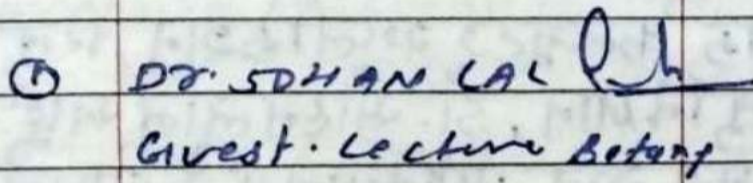 ① Dr. SOHAN LAL
Guest. Lecture Botany